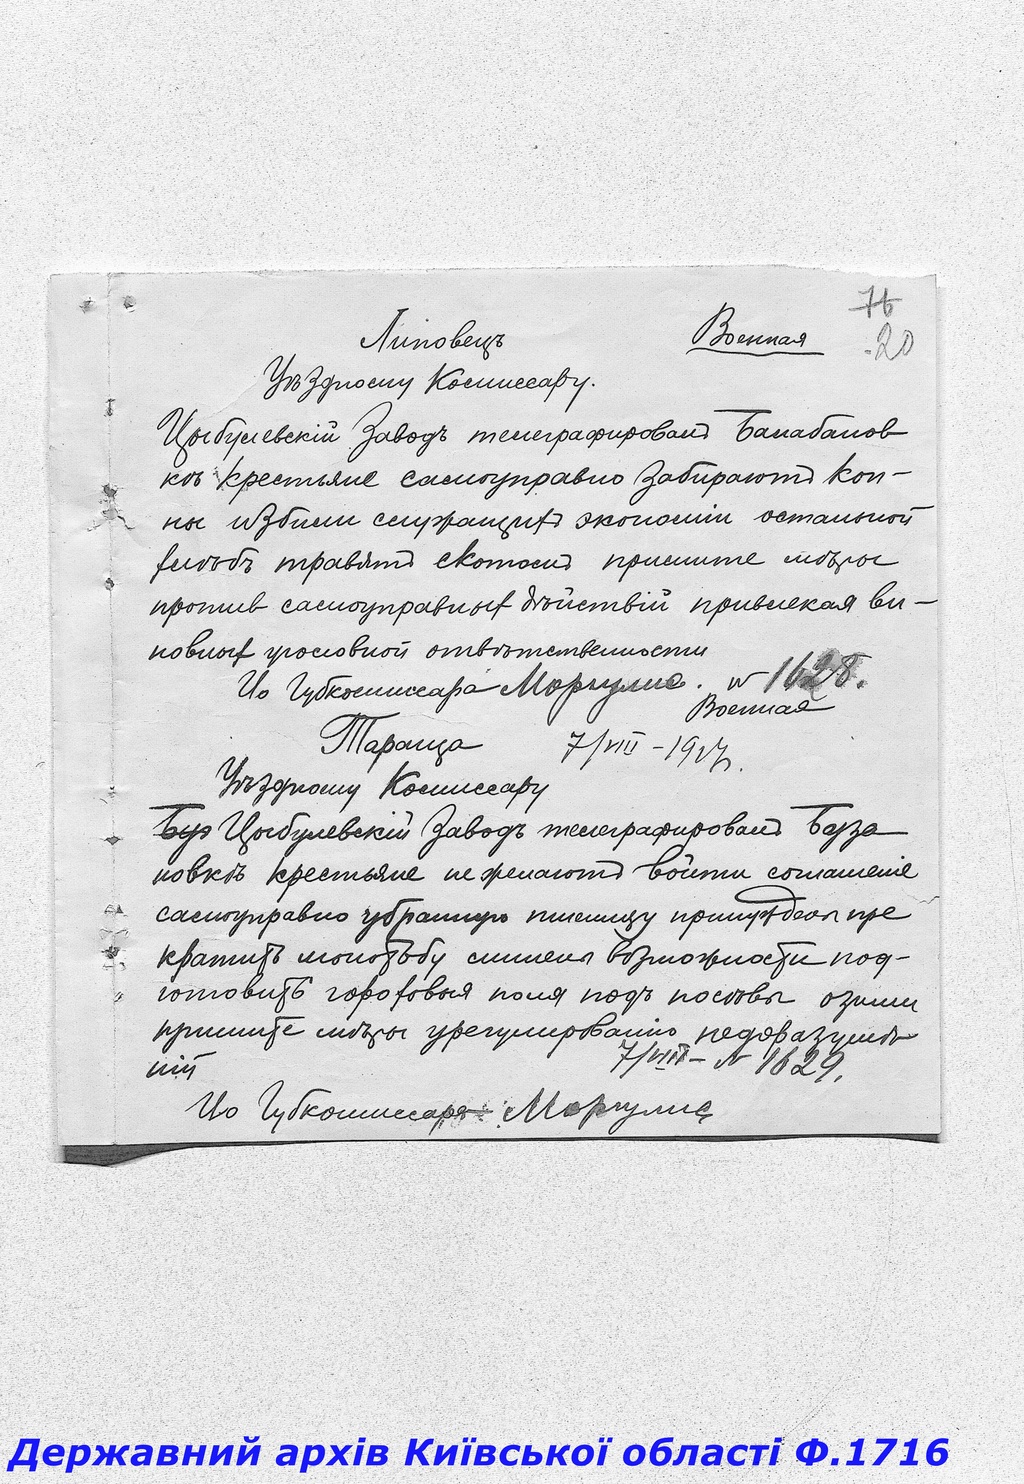 76
20
Липовецъ Военная
Уѣздному Комиссару.
Цыбулевскій Заводъ телеграфировалъ Балабанов
кѣ крестьяне самоуправно забираютъ коп-
ны избили служащихъ экономіи остальной
хлѣбъ травятъ скотомъ примите мѣры
против самоуправных дѣйствій привлекая ви-
новных уголовной отвѣтственности
Ио Губкомиссара Моргулис. № 1628.
Военная
Тараща 7/VIII - 1917.
Уѣздному Комиссару
Буз Цыбулевскій Заводъ телеграфировалъ Буза
новкѣ крестьяне не желаютъ войти соглашеніе
самоуправно убранную пшеницу принуждены пре
кратить молотьбу лишены возможности под-
готовить гороховыя поля подъ посѣвы озими
примите мѣры урегулированію недоразумѣ
ній 7/VIII - № 1629.
Ио Губкомиссара Моргулис
Державний архів Київської області Ф.1716